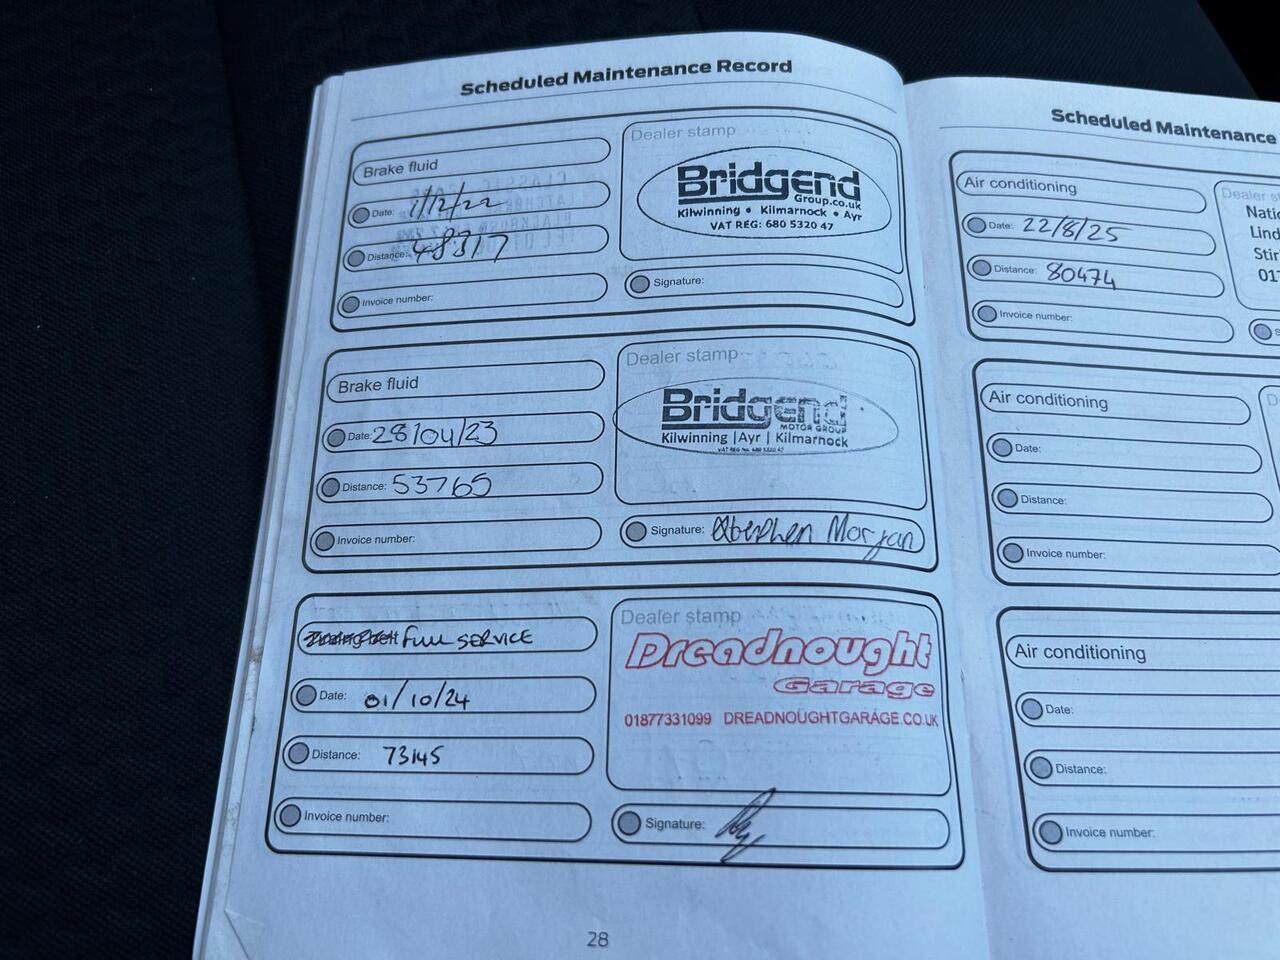 Scheduled Maintenance Record
Brake fluid
Date: 1/12/22
Distance: 48317
Invoice number:
Dealer stamp
Bridgend
Group.co.uk
Kilwinning • Kilmarnock • Ayr
VAT REG: 680 5320 47
Signature:
Brake fluid
Date: 28/04/23
Distance: 53765
Invoice number:
Dealer stamp
Bridgend
MOTOR GROUP
Kilwinning | Ayr | Kilmarnock
VAT REG No. 680 5320 47
Signature: Stephen Morgan
Timing belt FULL SERVICE
Date: 01/10/24
Distance: 73145
Invoice number:
Dealer stamp
Dreadnought
Garage
01877331099 DREADNOUGHTGARAGE.CO.UK
Signature:
28
Scheduled Maintenance
Air conditioning
Date: 22/8/25
Distance: 80474
Invoice number:
Dealer s
Natio
Lind
Stir
017
S
Air conditioning
Date:
Distance:
Invoice number:
D
Air conditioning
Date:
Distance:
Invoice number: